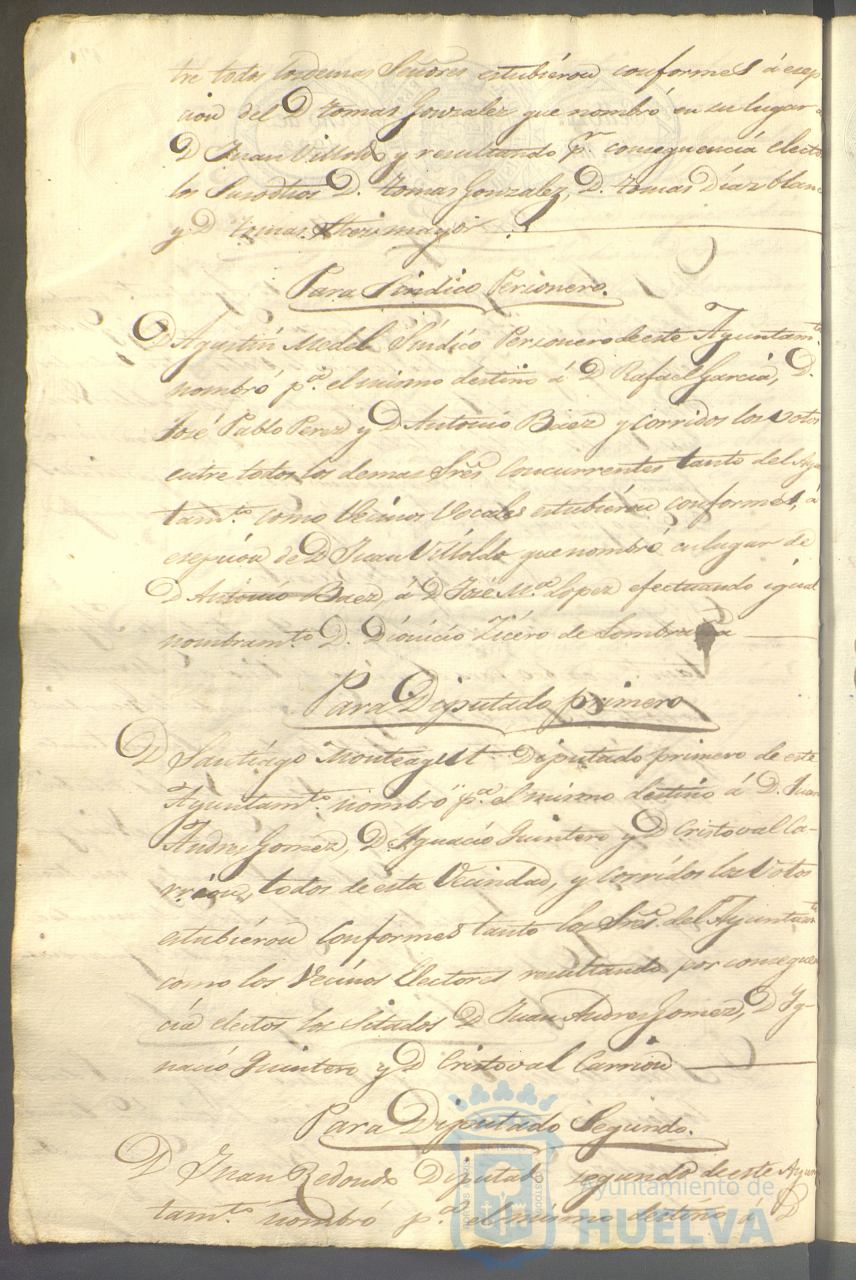 tre todos los demas Señores estubiéron conformes á ecep
cion del D. tomas Gonzalez que nombró en su lugar a
D Juan Villoldo y resultando p.r consequencia electo
los Susodhos D. tomas Gonzalez, D. tomas Díaz blan
y D tomas mayor
Para Sindico Personero.
D Agustin Medel Síndico Personero de este Ayuntam.to
nombró p.a el mismo destino á D Rafael Garcia, D.
José Pablo Perez y D Antonio Baez y corridos los votos
entre todos los demas Sres. Concurrentes tanto del Ayun
tam.to como Vecinos Vocales estubiéron conformes, á
esepcion de D Juan Villoldo que nombró en lugar de
D Antonio Baez, á D José M.a Lopez efectuando igual
nombram.to D. Dionicio de
Para Diputado primero
D Santiago Monteagut Diputado primero de este
Ayuntam.to nombró p.a el mismo destino á D. Juan
Andres Gomez, D. Ygnacio Quintero y D Cristoval Ca-
rrion, todos de esta Vecindad, y corridos los Votos
estubiéron Conformes tanto los Sres. del Ayuntam.to
como los Vecinos Electores resultando por consequen
cia electos los Sitados D Juan Andres Gomez, D Yg-
nacio Quintero y D Cristoval Carrion
Para Diputado Segundo.
D Juan Redondo Diputado segundo de este Ayun
tam.to nombró p.a el mismo destino á D
Ayuntamiento de
HUELVA